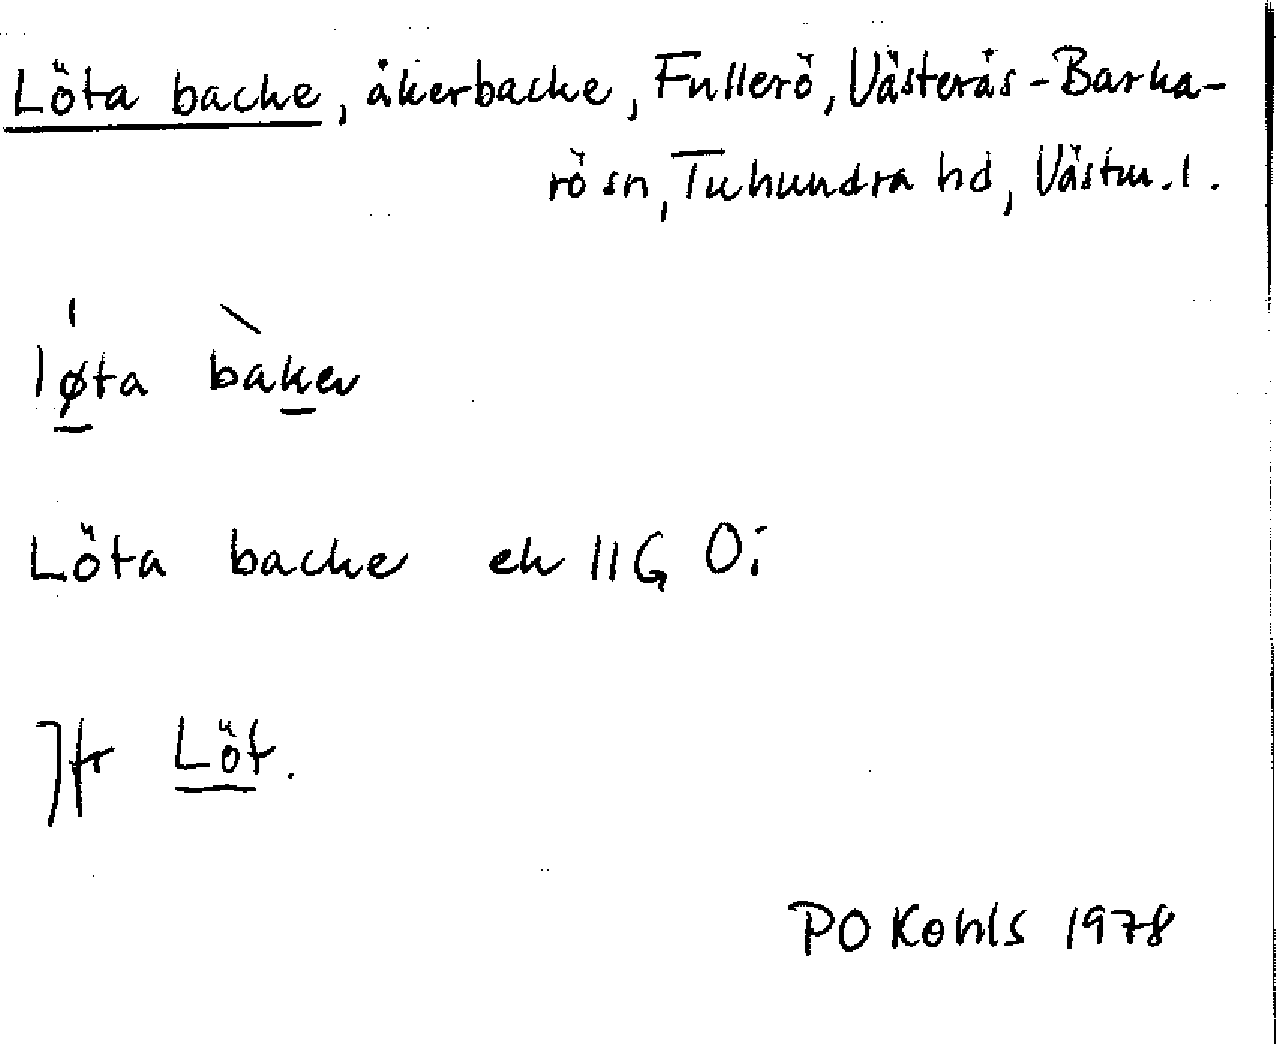 Löta backe, åkerbacke, Fullerö, Västerås-Barka-
rö sn, Tuhundra hd, Västm. l.
løta bakeɴ
Löta backe ek 11G Oi
Jfr Löt.
PO Kohls 1978